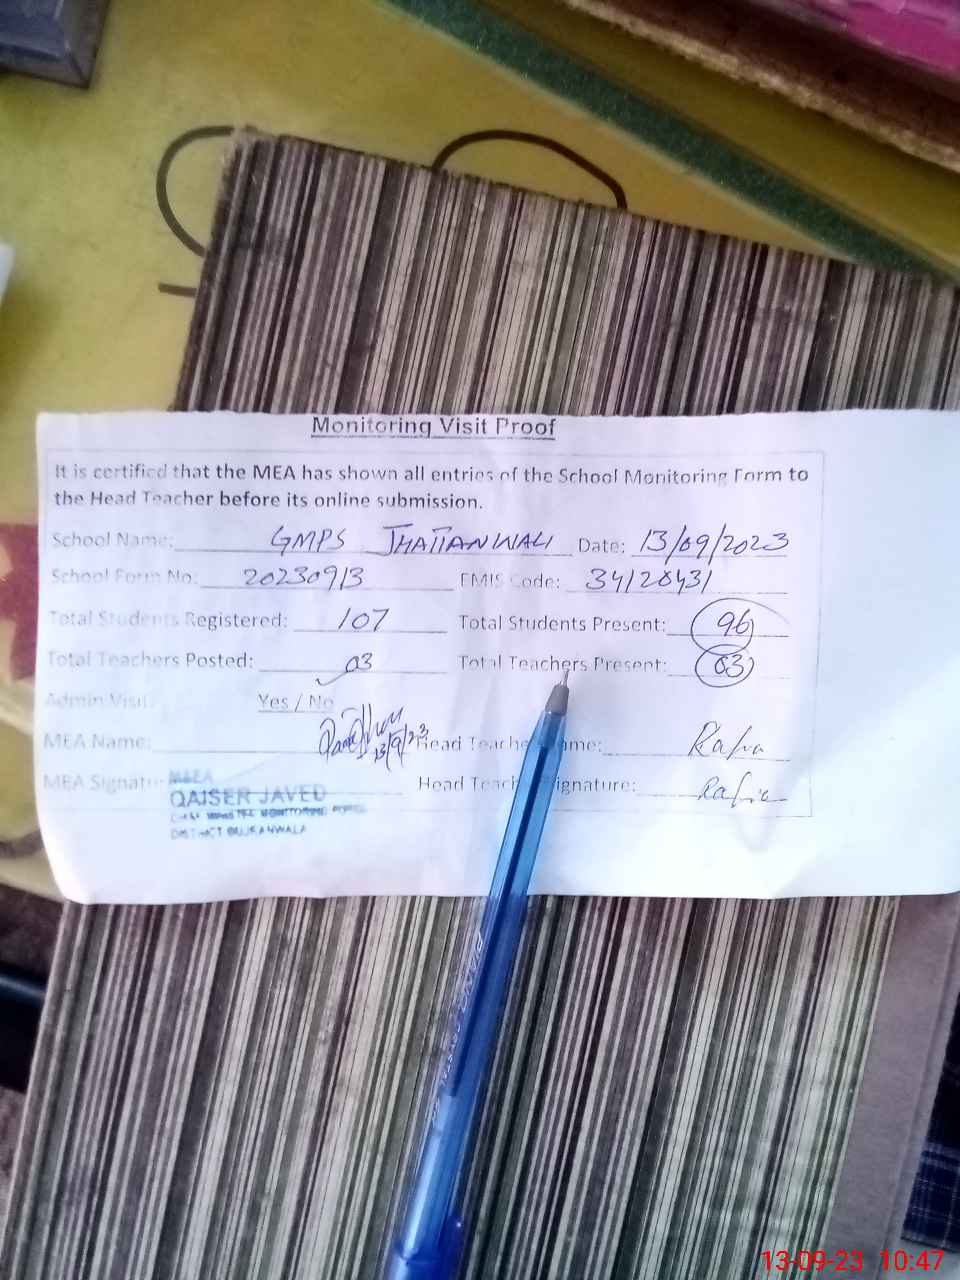 Monitoring Visit Proof
It is certified that the MEA has shown all entries of the School Monitoring Form to
the Head Teacher before its online submission.
School Name: GMPS JHATTANWALI Date: 13/09/2023
School Form No: 20230913 EMIS Code: 34120431
Total Students Registered: 107 Total Students Present: 96
Total Teachers Posted: 03 Total Teachers Present: 03
Admin Visit: Yes / No
MEA Name: 13/9/23 Head Teacher Name: Rafia
MEA Signature Head Teacher Signature: Rafia
M&EA
QAISER JAVED
DISTRICT GUJRANWALA
13-09-23 10:47